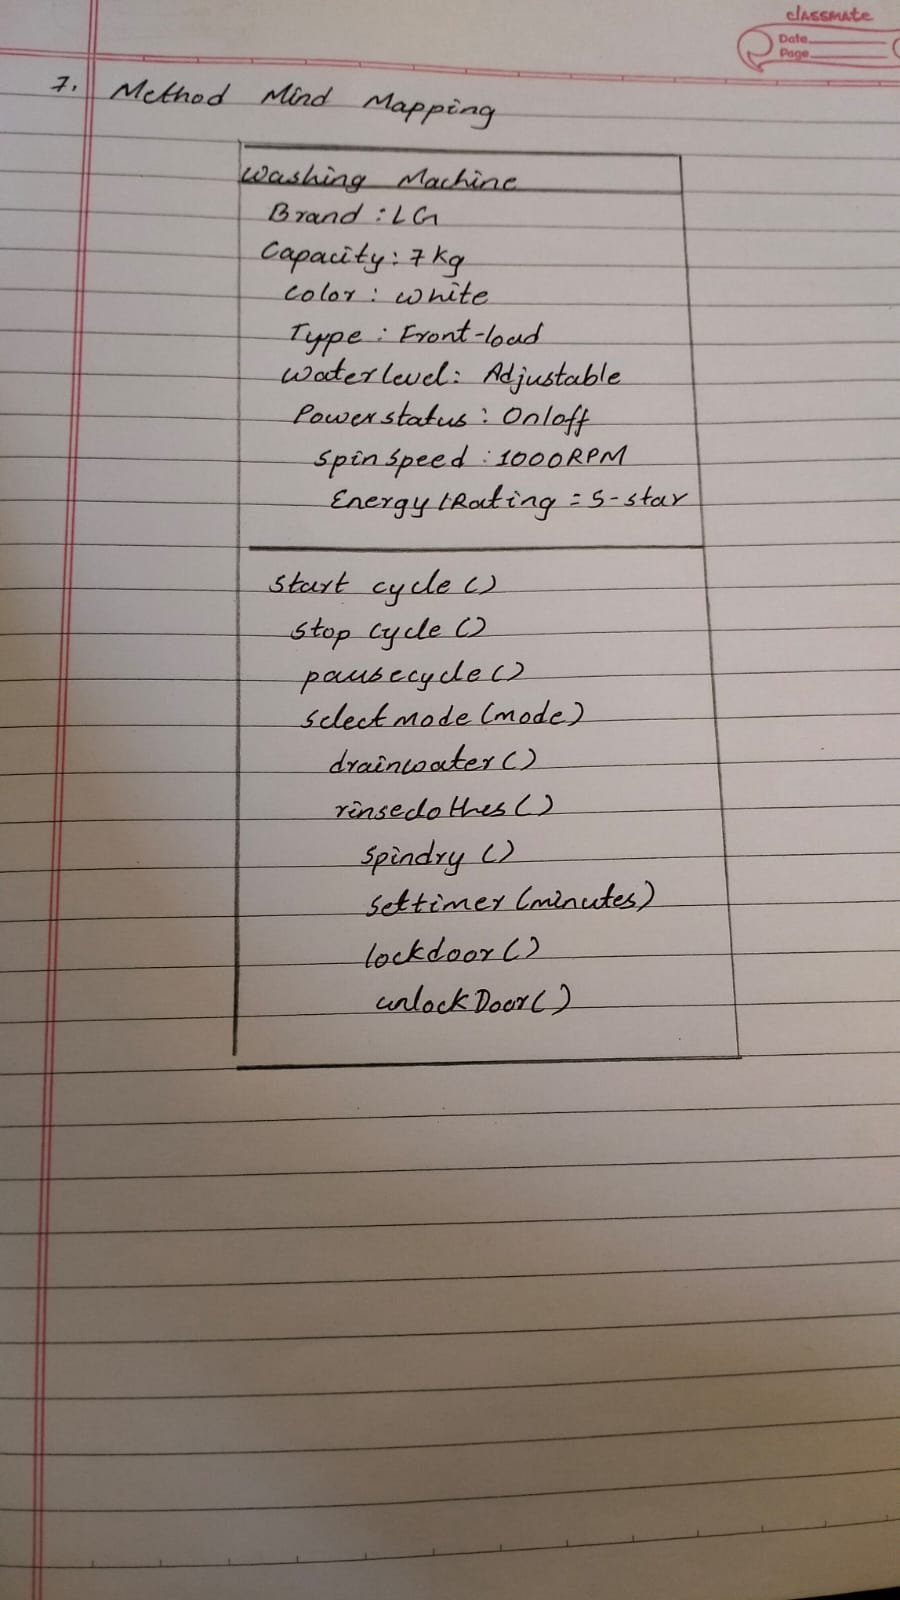 classmate
Date
Page
7. Method Mind Mapping
Washing Machine
Brand : LG
Capacity : 7 kg
Color : White
Type : Front-load
Waterlevel : Adjustable
Powerstatus : On/off
Spin Speed : 1000RPM
Energy Rating = 5-star
start cycle ()
stop cycle ()
pausecycle ()
select mode (mode)
drainwater ()
rinseclothes ()
spindry ()
settimer (minutes)
lockdoor ()
unlock Door ()